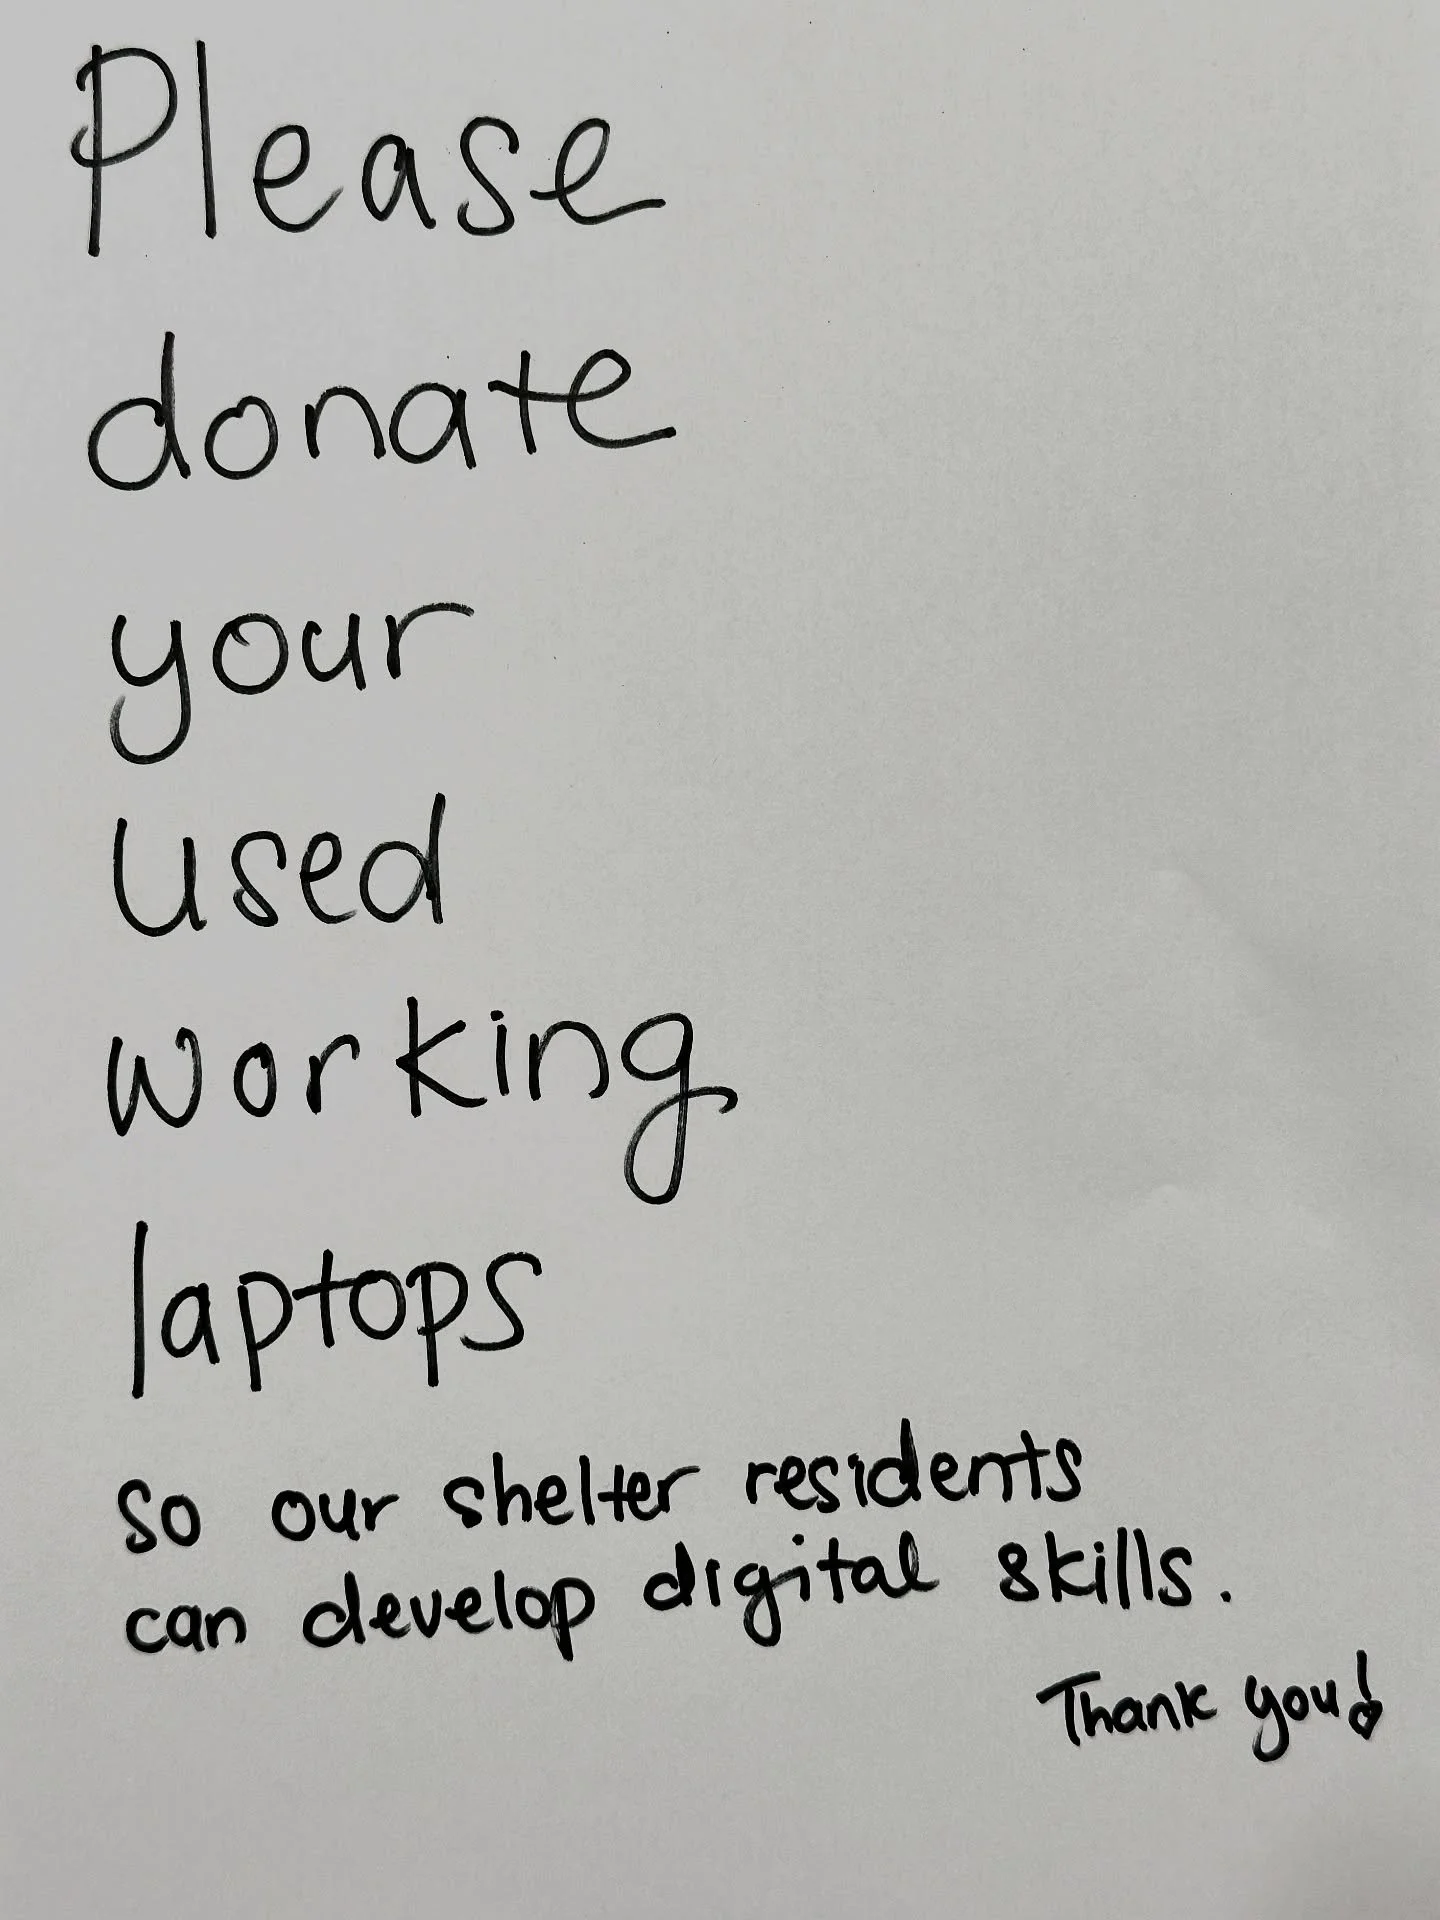 Please
donate
your
used
working
laptops
so our shelter residents
can develop digital skills.
Thank you!